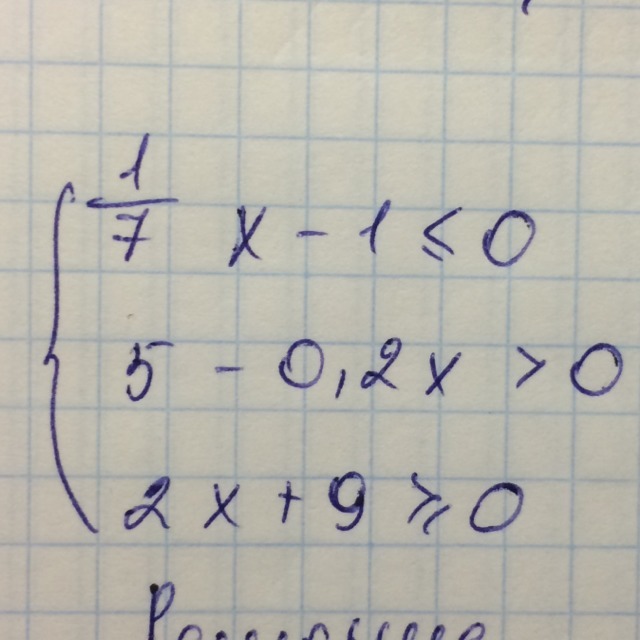 1/7 x - 1 ≤ 0
5 - 0,2x > 0
2x + 9 ≥ 0